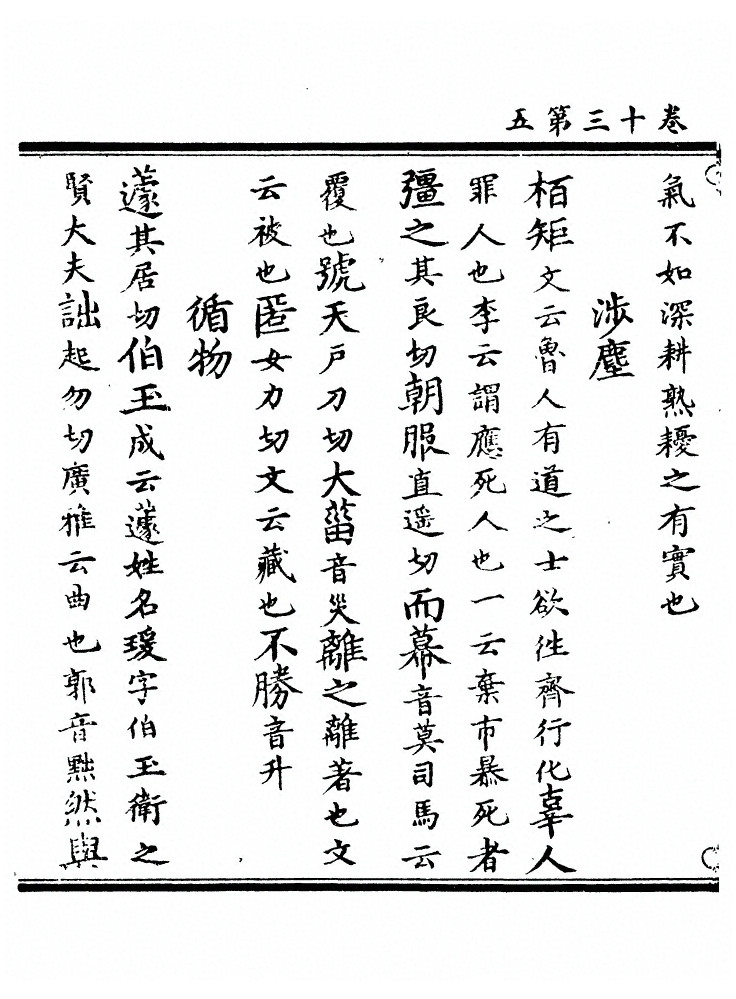 卷十三第五
氣不如深耕熟耰之有實也
涉塵
栢矩文云魯人有道之士欲徃齊行化辜人
罪人也李云謂應死人也一云棄市暴死者
彊之其良切朝服直遥切而幕音莫司馬云
覆也號天戸刀切大菑音災離之離著也文
云被也匿女力切文云藏也不勝音升
循物
蘧其居切伯玉成云蘧姓名瑗字伯玉衛之
賢大夫詘起勿切廣雅云曲也郭音黜然與